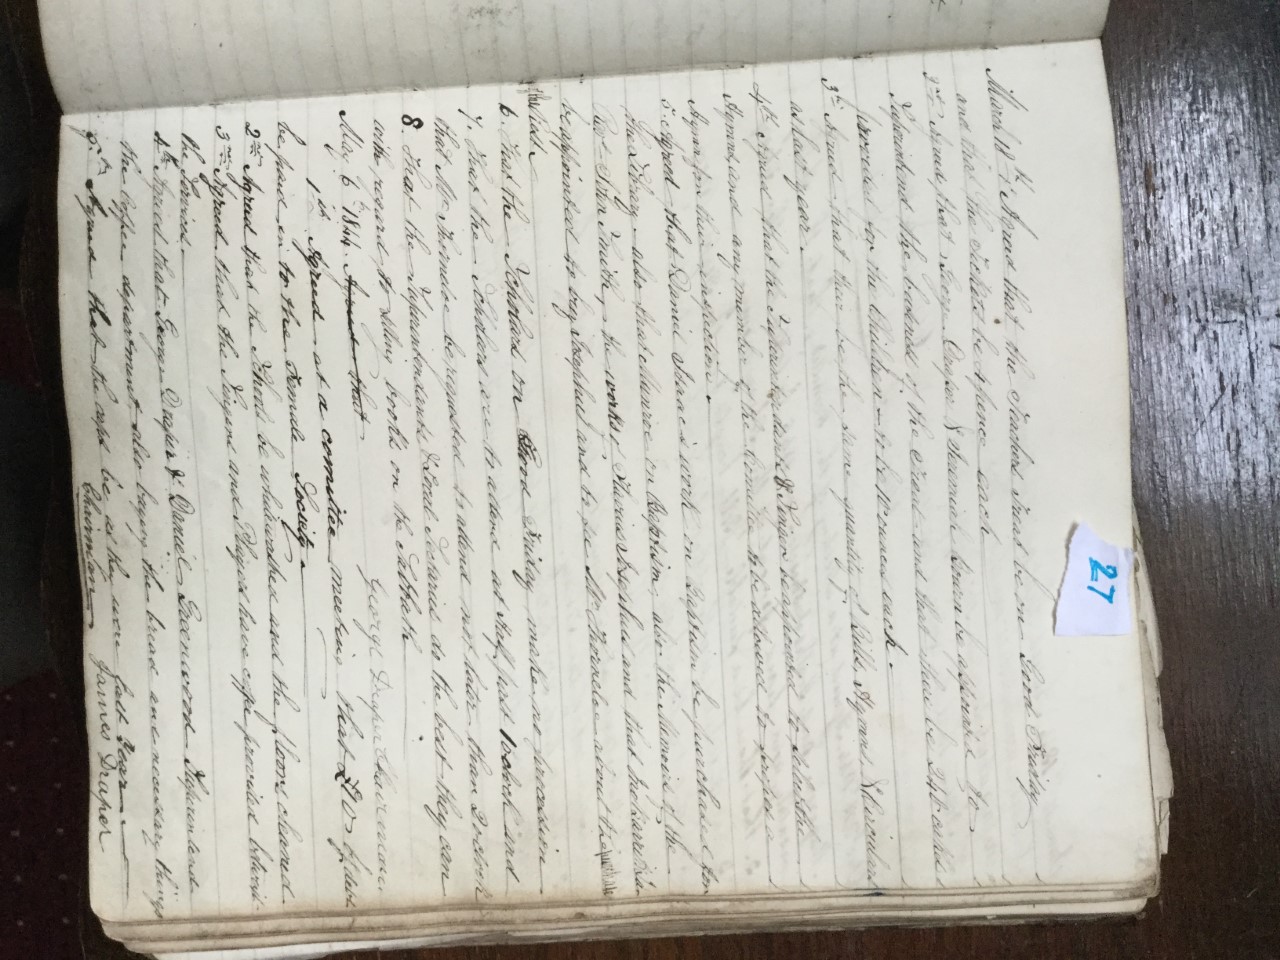 27
March 18th Agreed that the Teachers Treat be on Good Friday
and that the Tickets be 4 pence each
2nd Agreed that George Draper & Jeremiah Bourn be appointed to
Superintend the business of the Treat and that there be 240 cakes
provided for the Children – to be 10 ounces each.
3rd Agreed that their be the same quantity of Bills, Hymns, & Circulars
as last year.
4th Agreed that the Superintendants & Singer be appointed to select the
Hymns, and any member of the Comittee to be allowed to propose a
Hymn for their inspection.
5. Agreed that Daniel Isaac's work on Baptism be purchased for
the Library – also that Munroe on Baptism, also the Memoirs of the
Revd John Smith, the works of Flavius Josephus and that Jno Barrett
be appointed to buy Josephus and to see Mr Thorneloe about the purchase
of the Rest.
6. That the Scholars on Good Friday make no procession
7. That the Scholars are to attend at Half past 1 oclock and
that Mr Thorneloe be requested to attend not later than 2 oclock
8. That the Superintendants & Local do the best they can
with regard to selling books on the Sabbath
George Draper Chairman.
May 6th 1844. Agreed that
1st Agreed at a comittee meeting that £10 of debt
be paid in to the Female Society.
2nd Agreed that the Schools be whitewashed and the floors cleaned
3rd Agreed that the Singers and Players have coffee provided betwixt
the Services.
4th Agreed that George Draper & Daniel Greenwood Superintend
the Coffee department, also buying the bread and necessary things
5th Agreed that the caps be as they were last Year.
Chairman James Draper